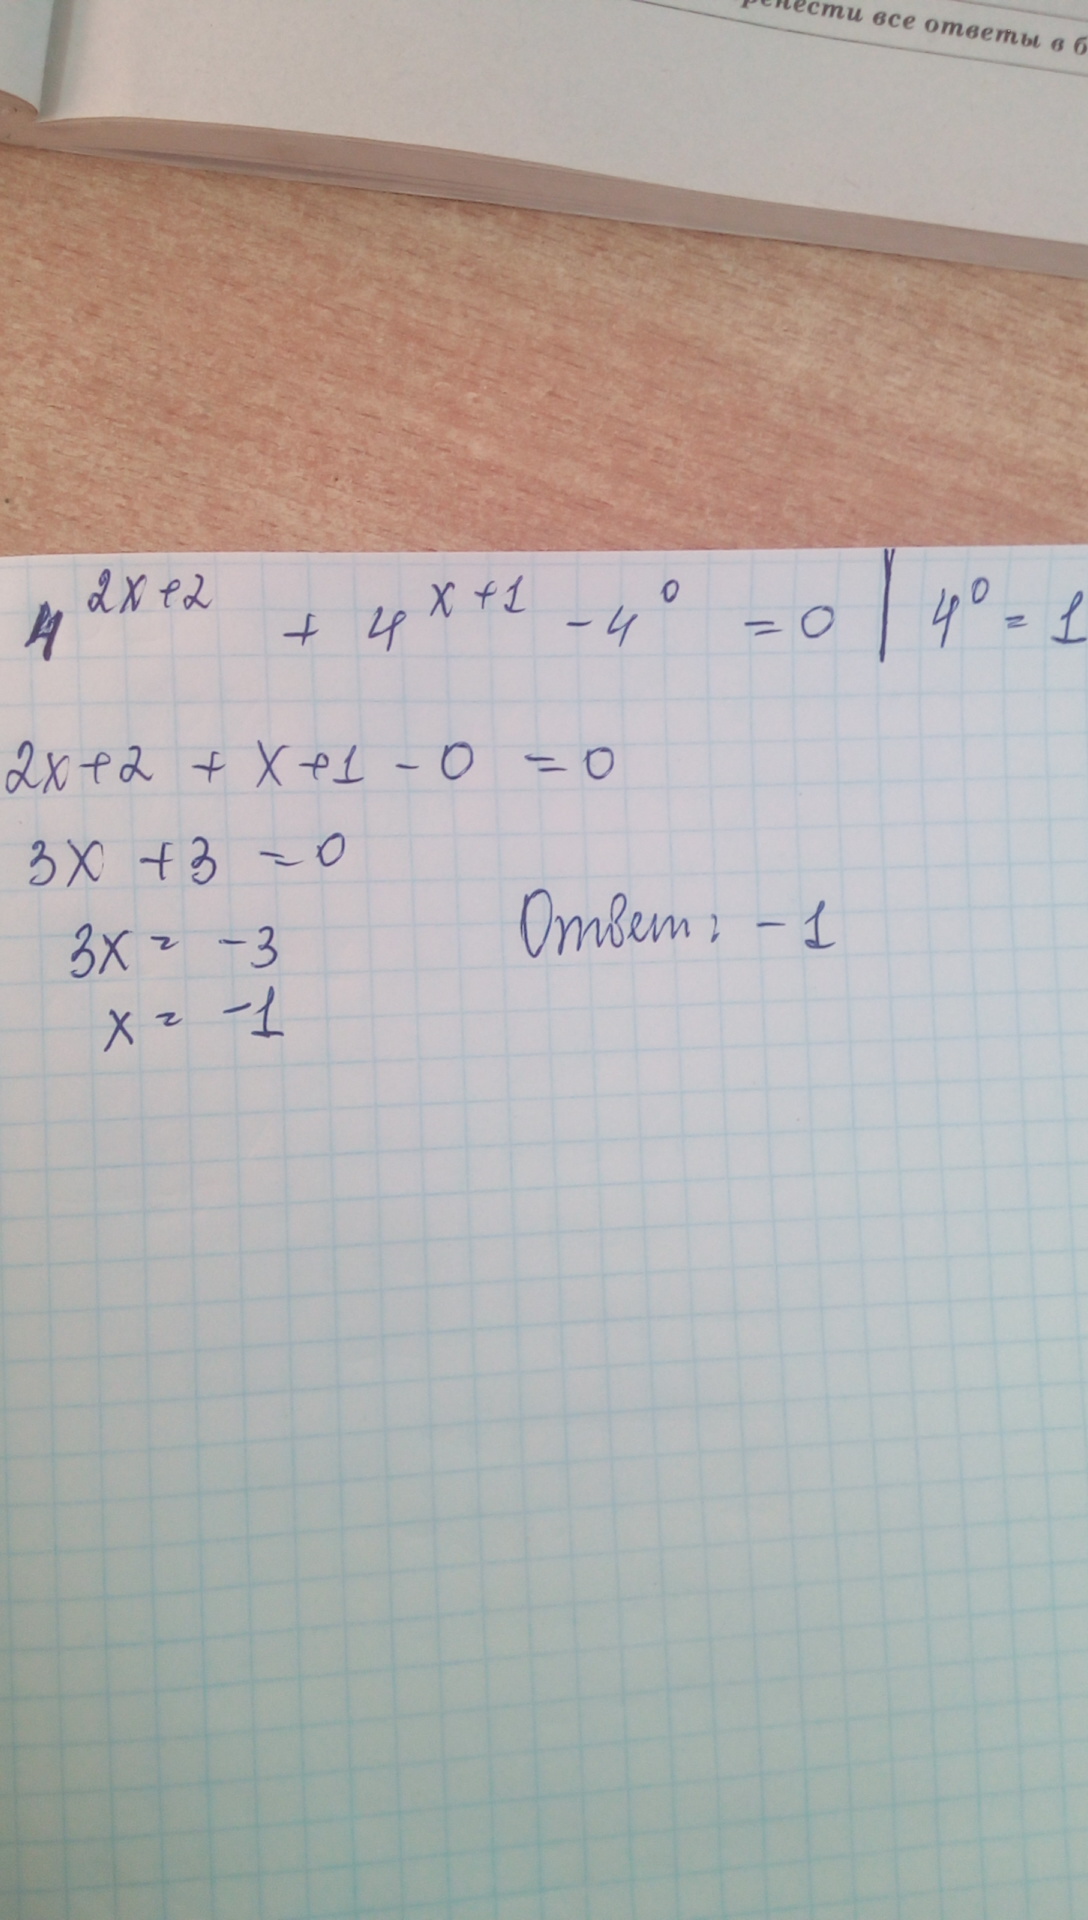 все ответы в
4^{2x+2} + 4^{x+1} - 4^0 = 0 | 4^0 = 1
2x+2 + x+1 - 0 = 0
3x + 3 = 0
3x = -3
Ответ: -1
x = -1